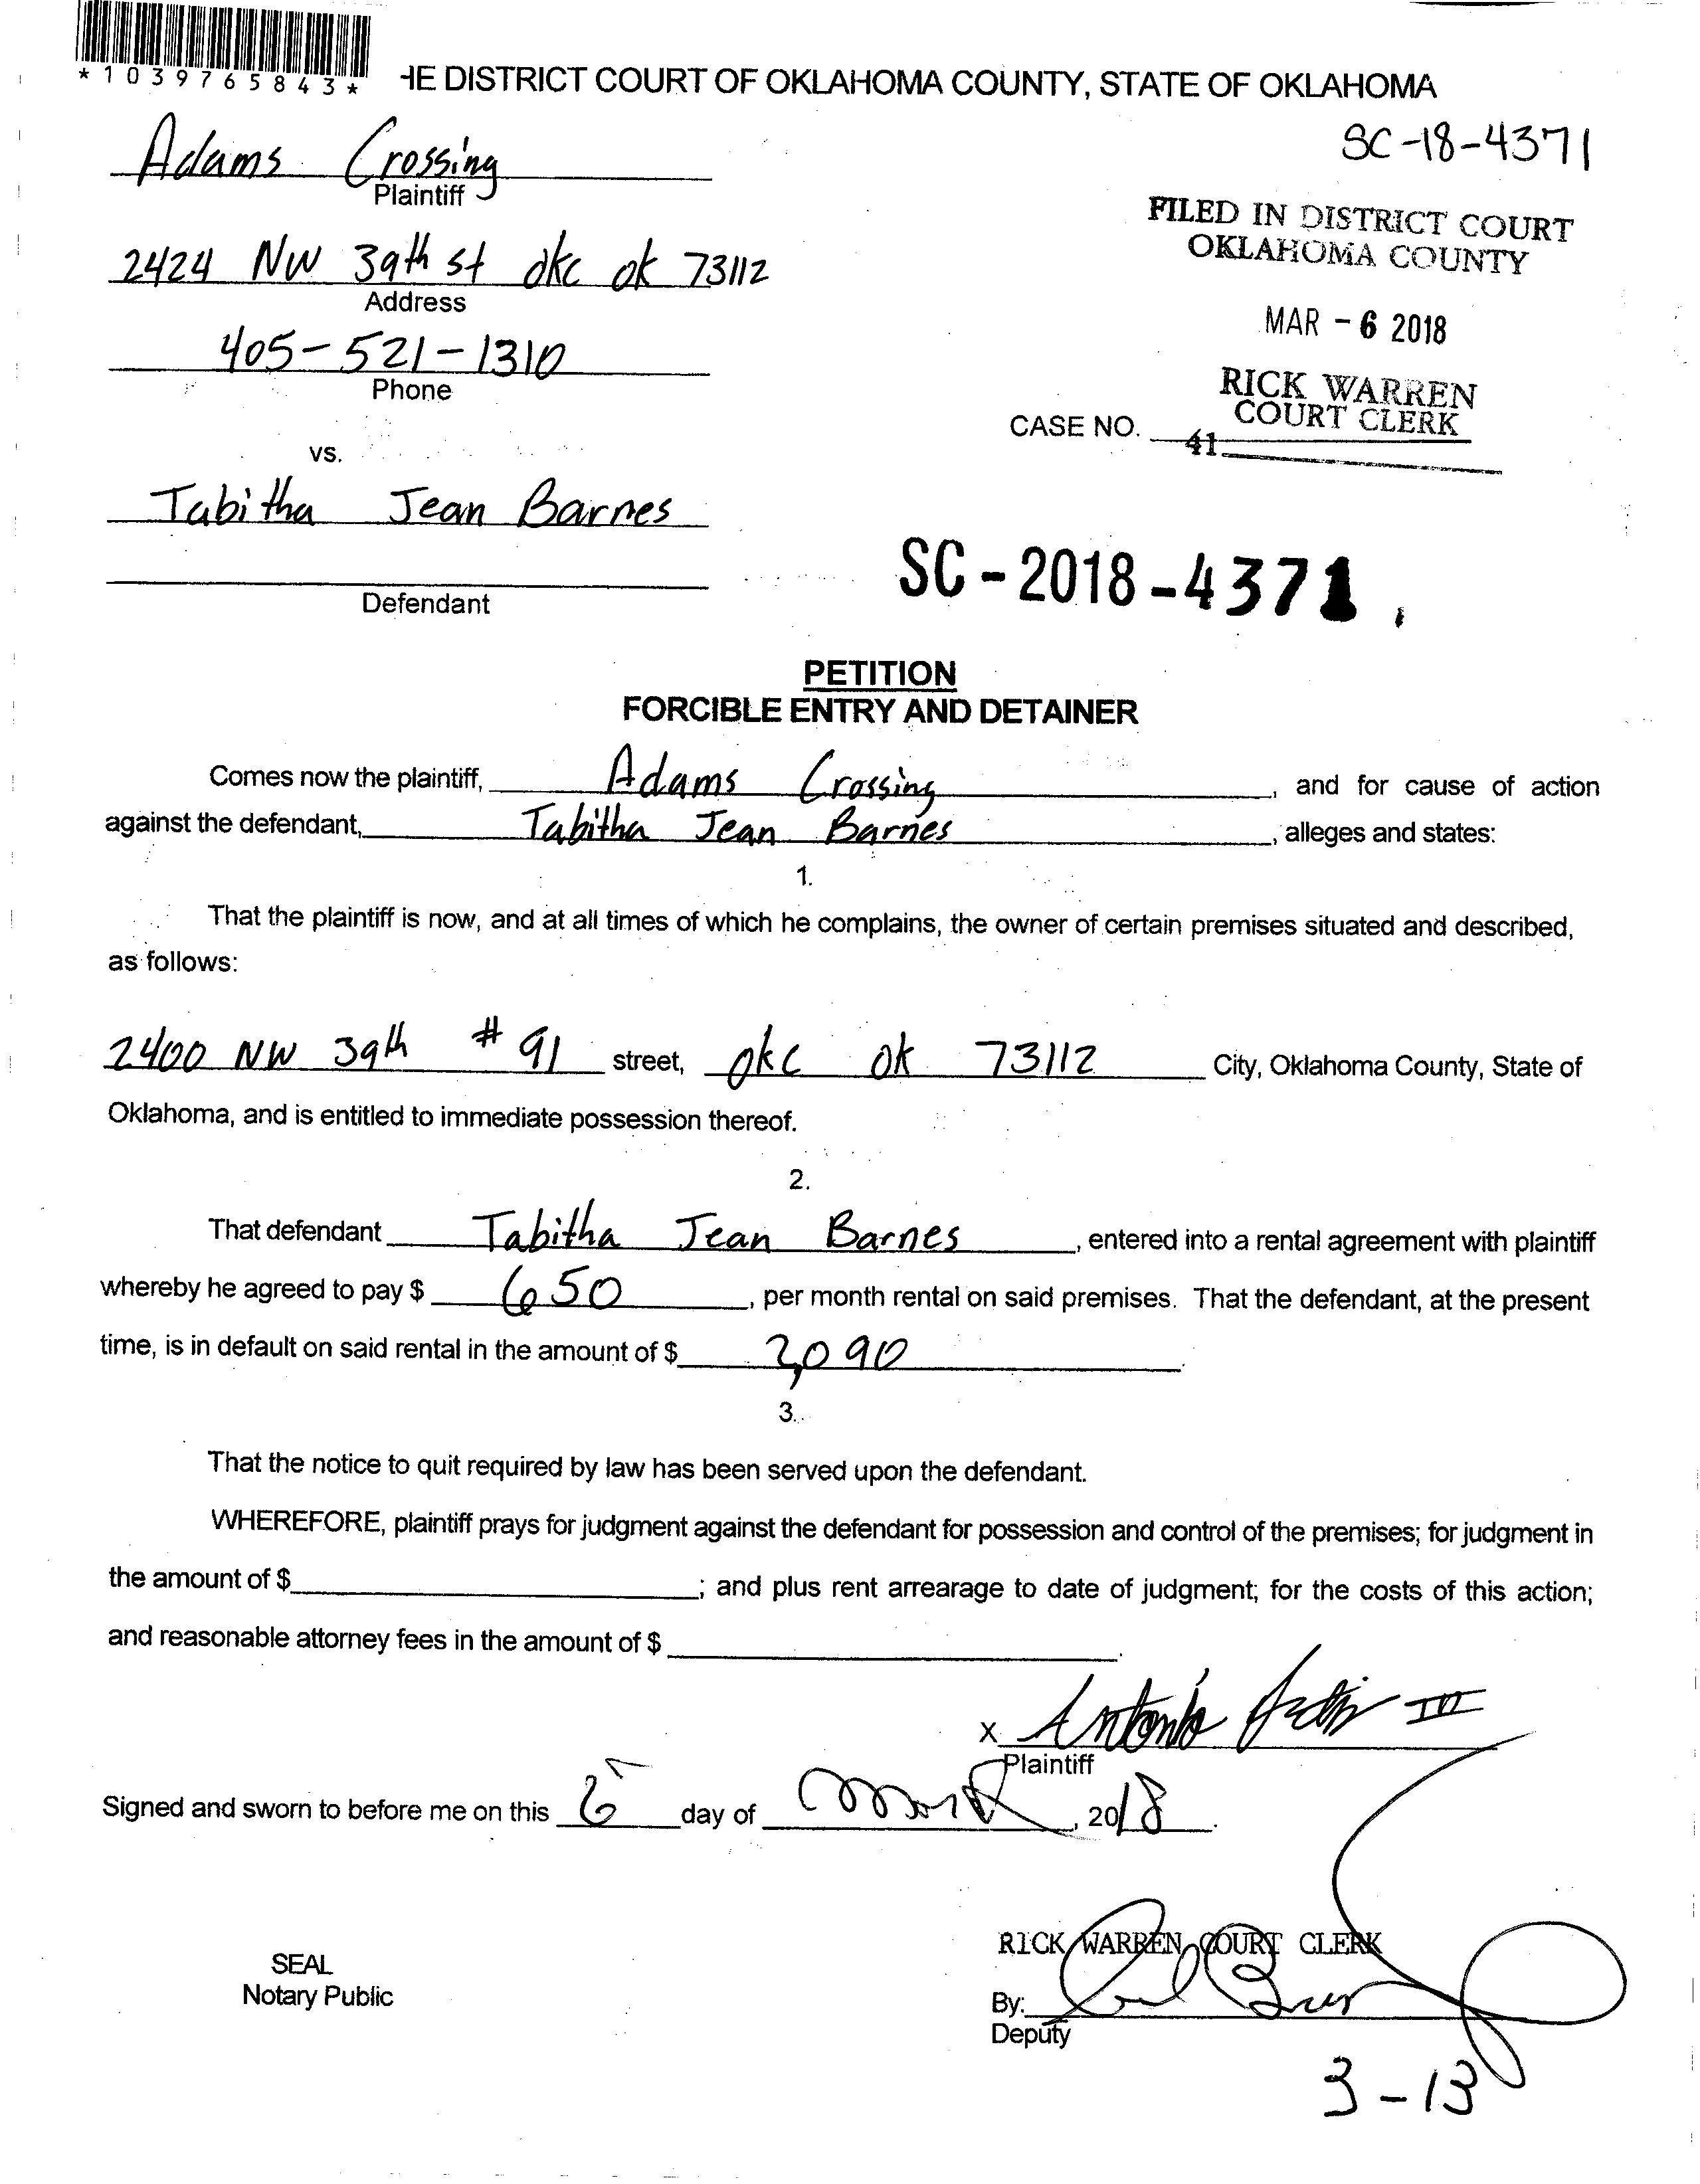 *1039765843*
HE DISTRICT COURT OF OKLAHOMA COUNTY, STATE OF OKLAHOMA
SC-18-4371
Adams Crossing
Plaintiff
FILED IN DISTRICT COURT
OKLAHOMA COUNTY
2424 NW 39th st okc ok 73112
Address
MAR - 6 2018
405-521-1310
Phone
RICK WARREN
COURT CLERK
CASE NO.
41
vs.
Tabitha Jean Barnes
Defendant
SC-2018-4371
PETITION
FORCIBLE ENTRY AND DETAINER
Comes now the plaintiff, Adams Crossing, and for cause of action
against the defendant, Tabitha Jean Barnes, alleges and states:
1.
That the plaintiff is now, and at all times of which he complains, the owner of certain premises situated and described,
as follows:
2400 NW 39th # 91 street, okc ok 73112 City, Oklahoma County, State of
Oklahoma, and is entitled to immediate possession thereof.
2.
That defendant Tabitha Jean Barnes, entered into a rental agreement with plaintiff
whereby he agreed to pay $ 650, per month rental on said premises. That the defendant, at the present
time, is in default on said rental in the amount of $ 2,090.
3.
That the notice to quit required by law has been served upon the defendant.
WHEREFORE, plaintiff prays for judgment against the defendant for possession and control of the premises; for judgment in
the amount of $ ; and plus rent arrearage to date of judgment; for the costs of this action;
and reasonable attorney fees in the amount of $ .
X Antonio III
Plaintiff
Signed and sworn to before me on this 6 day of March, 2018.
RICK WARREN COURT CLERK
SEAL
Notary Public
By:
Deputy
3-13